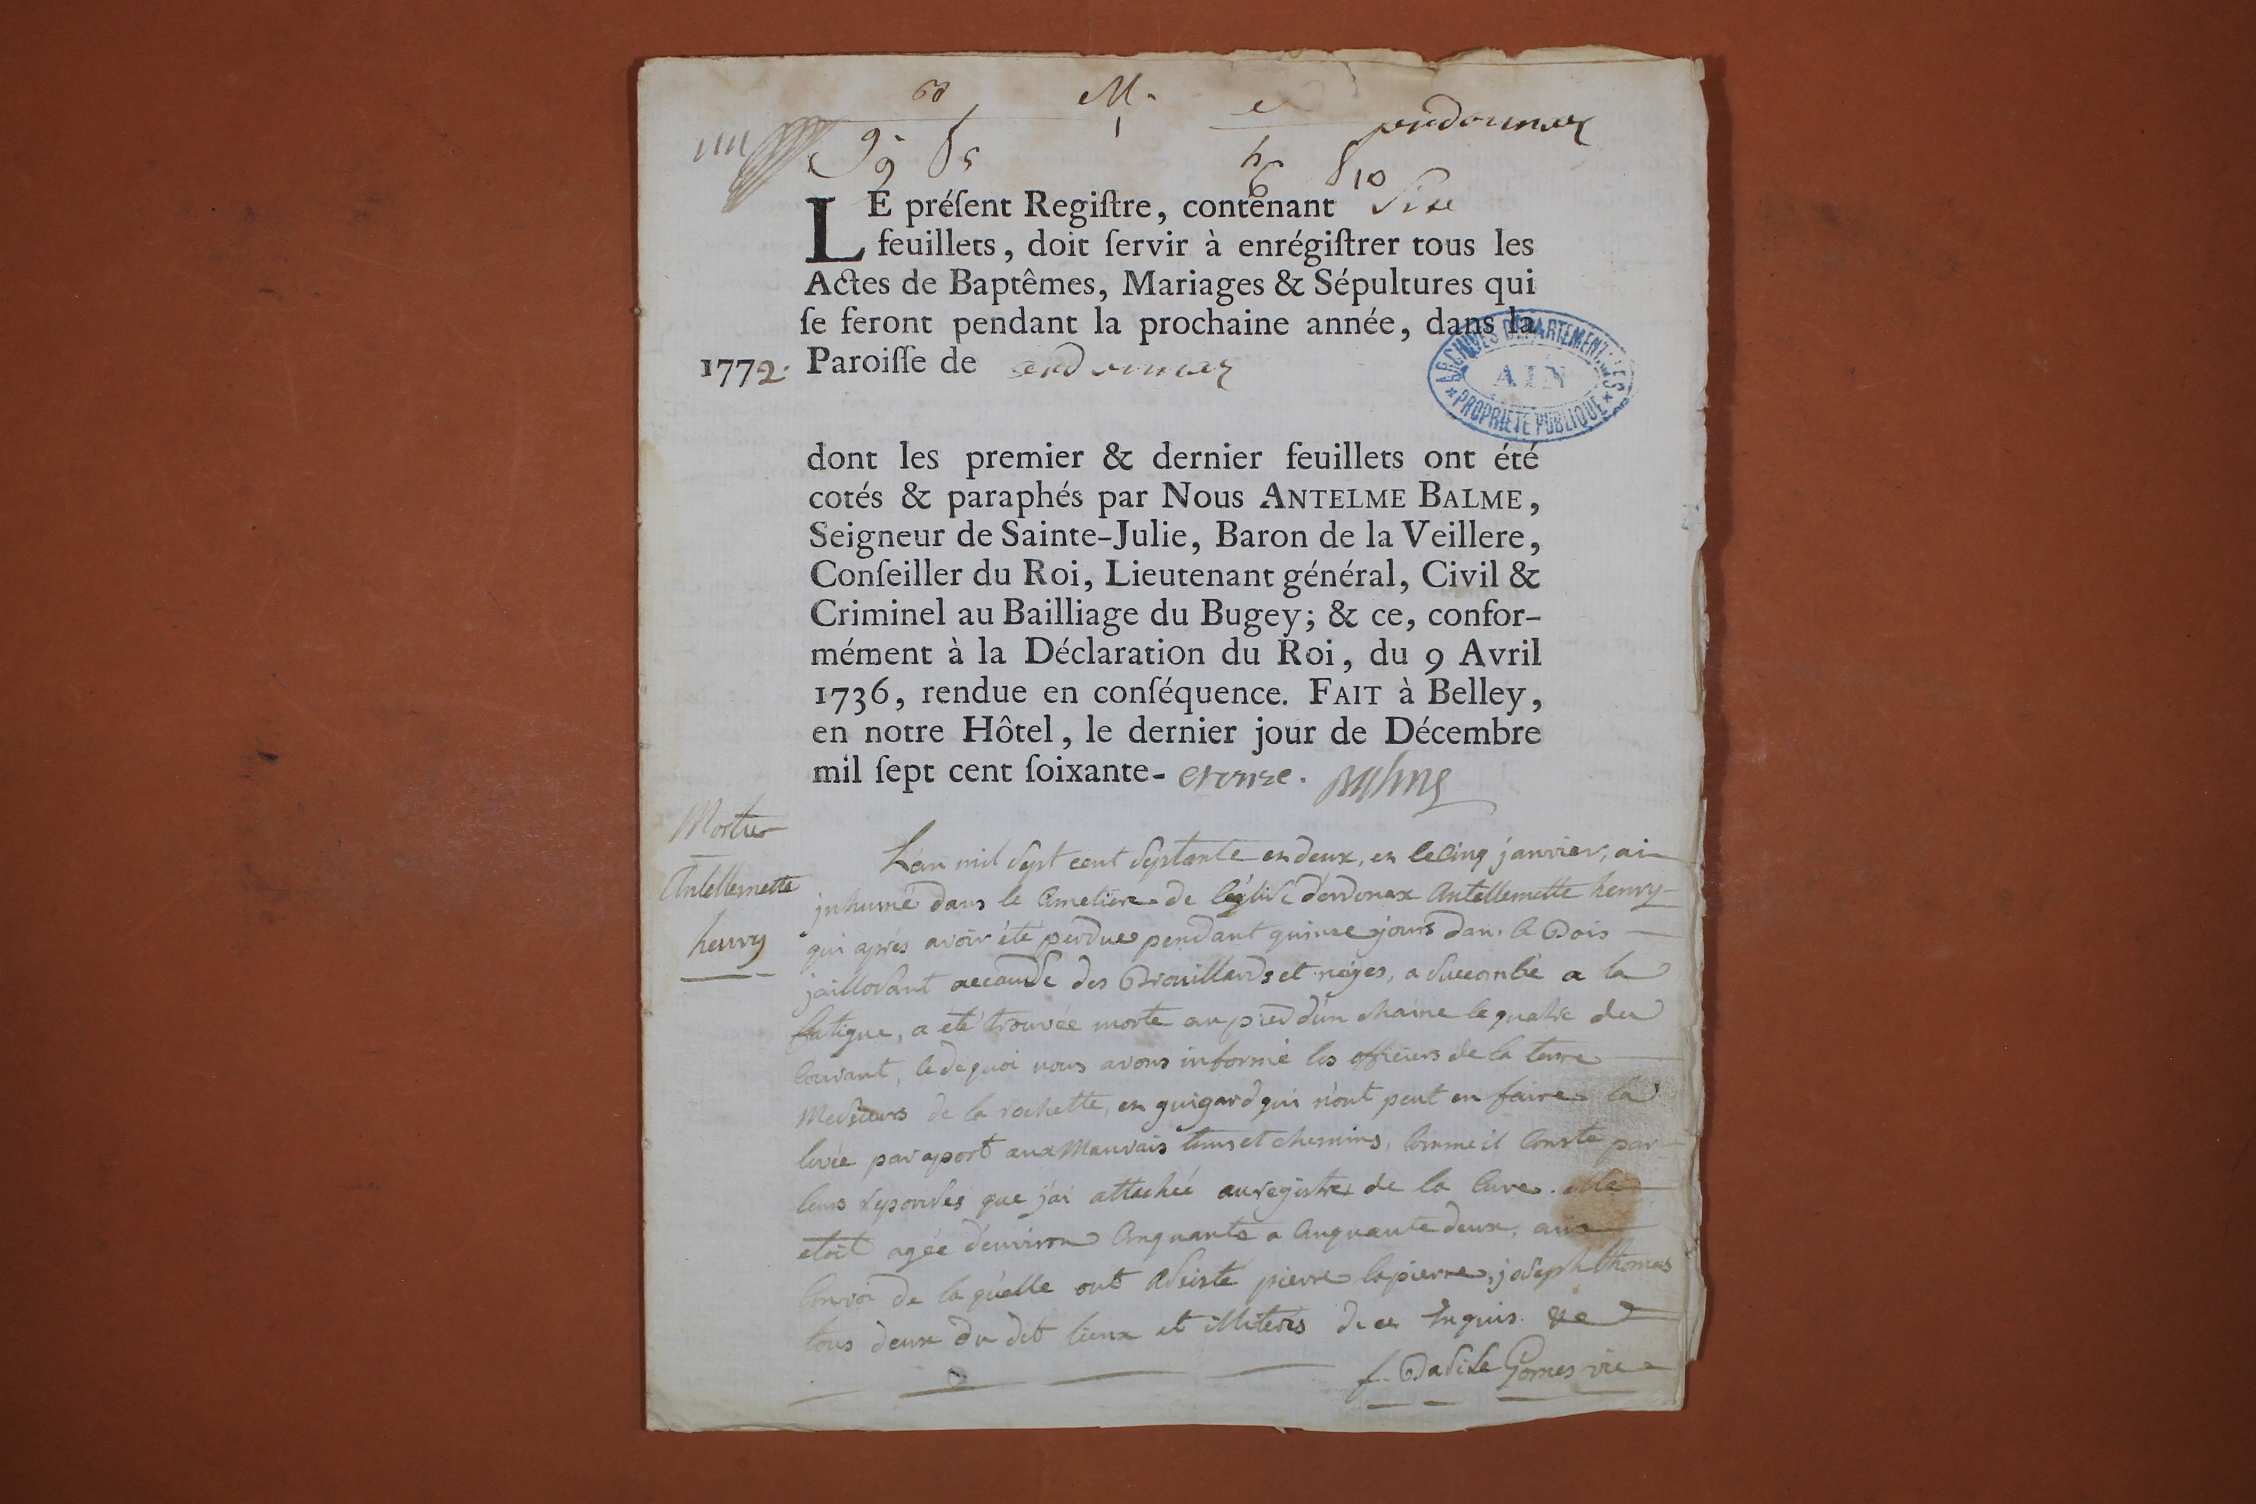 68 M. e
Ordonnaz
1
LE préſent Regiſtre, contenant Six
feuillets, doit ſervir à enrégiſtrer tous les
Actes de Baptêmes, Mariages & Sépultures qui
ſe feront pendant la prochaine année, dans la
1772. Paroiſſe de ordonnaz
ARCHIVES DÉPARTEMENTALES
AIN
PROPRIÉTÉ PUBLIQUE
dont les premier & dernier feuillets ont été
cotés & paraphés par Nous ANTELME BALME,
Seigneur de Sainte-Julie, Baron de la Veillere,
Conſeiller du Roi, Lieutenant général, Civil &
Criminel au Bailliage du Bugey; & ce, confor-
mément à la Déclaration du Roi, du 9 Avril
1736, rendue en conſéquence. FAIT à Belley,
en notre Hôtel, le dernier jour de Décembre
mil ſept cent ſoixante- et onze. Balme
Mortu
Antellemette
henry
L'an mil sept cent septante en deux, en le cinq janvier, ai
inhumé dans le Cimetiere de l'église d'ordonax Antellemette henry
qui après avoir été perdue pendant quinze jours dans le Bois
jaillosant accause des Brouillards et néiges, a succombé a la
fatigue, a eté trouvée morte au pied d'un chaine le quatre du
Courant, le de quoi nous avons informé les officiers de la terre
Messieurs de la rochette, en guigard qui n'ont peut en faire la
levée par aport aux Mauvais tems et chemins, Comme il Conste par
leurs réponses que j'ai attachée au registre de la Cure. elle
etoit agée d'environ Cinquante a Cinquante deux, ans
Convoi de laquelle ont assisté pierre lapierre, joseph thomas
tous deux du dit lieux et illiterés de ce Enquis. &c
f. Basile Gornes vic